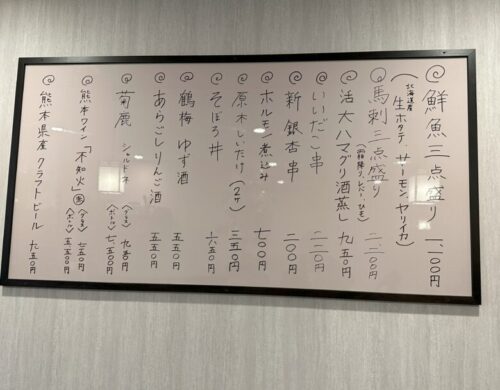 ◎ 鮮魚三点盛り 一、二〇〇円
(北海道産 生ホタテ、サーモン、ヤリイカ)
◎ 馬刺三点盛り 二、二〇〇円
◎ 活大ハマグリ酒蒸し 九五〇円
◎ いいだこ串 二二〇円
◎ 新銀杏串 二〇〇円
◎ ホルモン煮込み 七〇〇円
◎ 原木しいたけ(2ケ) 三五〇円
◎ そぼろ丼 六五〇円
◎ 鶴梅 ゆず酒 五五〇円
◎ あらごしりんご酒 五五〇円
◎ 菊鹿 シャルドネ 〈グラス〉 九五〇円
〈ボトル〉 七、五〇〇円
◎ 熊本ワイン「不知火」 〈グラス〉 七五〇円
〈ボトル〉 五、五〇〇円
◎ 熊本県産 クラフトビール 九五〇円